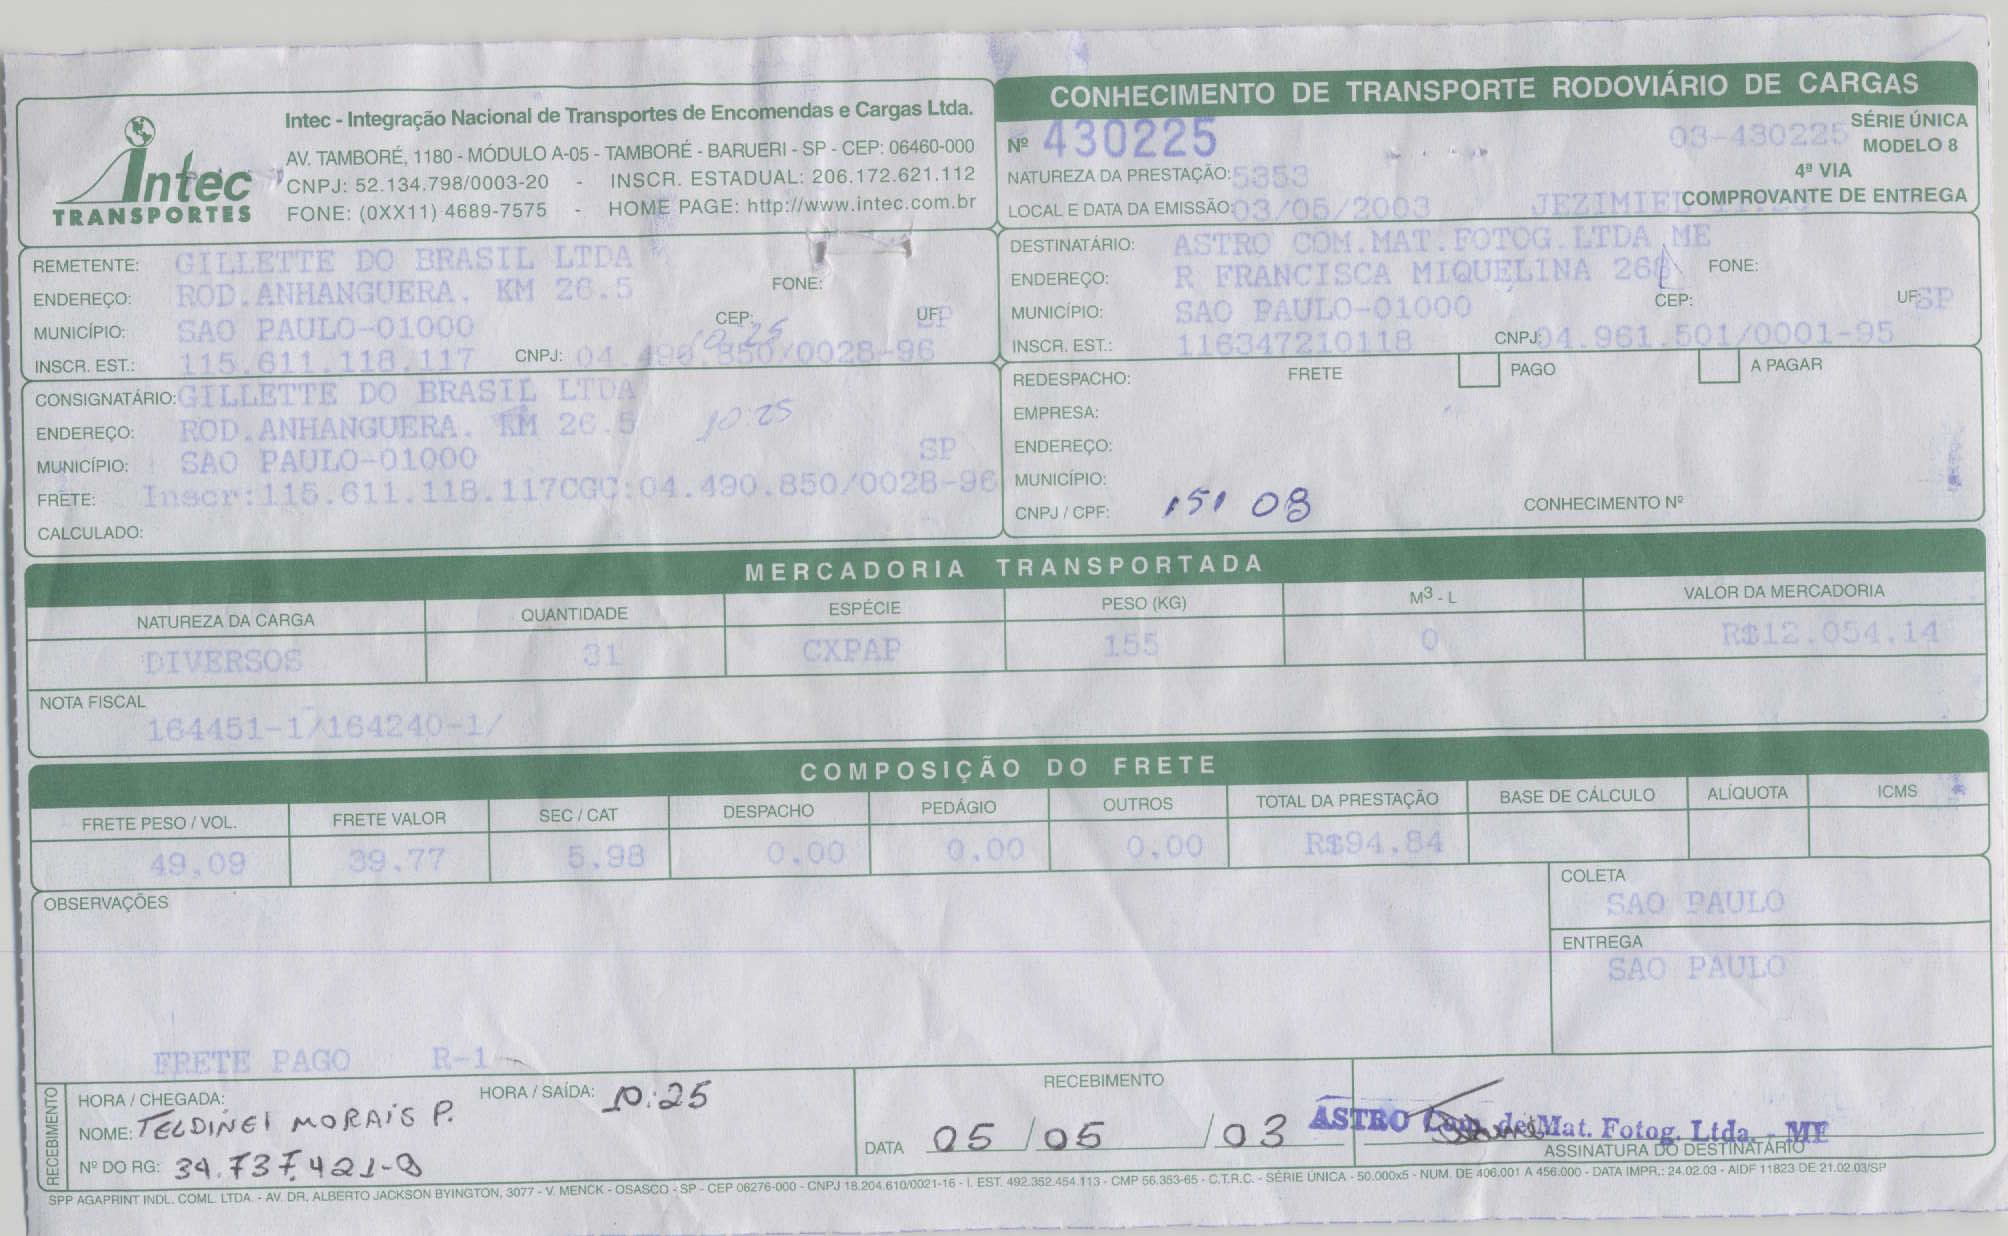 Intec
TRANSPORTES
Intec - Integração Nacional de Transportes de Encomendas e Cargas Ltda.
AV. TAMBORÉ, 1180 - MÓDULO A-05 - TAMBORÉ - BARUERI - SP - CEP: 06460-000
CNPJ: 52.134.798/0003-20 - INSCR. ESTADUAL: 206.172.621.112
FONE: (0XX11) 4689-7575 - HOME PAGE: http://www.intec.com.br
CONHECIMENTO DE TRANSPORTE RODOVIÁRIO DE CARGAS
Nº 430225 03-430225 SÉRIE ÚNICA
MODELO 8
NATUREZA DA PRESTAÇÃO: 5353 4ª VIA
LOCAL E DATA DA EMISSÃO: 03/05/2003 JEZIMIEL COMPROVANTE DE ENTREGA
REMETENTE: GILLETTE DO BRASIL LTDA
ENDEREÇO: ROD.ANHANGUERA. KM 26.5 FONE:
MUNICÍPIO: SAO PAULO-01000 CEP: UF: SP
10:25
INSCR. EST.: 115.611.118.117 CNPJ: 04.490.850/0028-96
DESTINATÁRIO: ASTRO COM.MAT.FOTOG.LTDA ME
ENDEREÇO: R FRANCISCA MIQUELINA 268 FONE:
MUNICÍPIO: SAO PAULO-01000 CEP: UF: SP
INSCR. EST.: 116347210118 CNPJ: 04.961.501/0001-95
CONSIGNATÁRIO: GILLETTE DO BRASIL LTDA
ENDEREÇO: ROD.ANHANGUERA. KM 26.5 10:25
MUNICÍPIO: SAO PAULO-01000 SP
FRETE: Inscr:115.611.118.117CGC:04.490.850/0028-96
CALCULADO:
REDESPACHO: FRETE PAGO A PAGAR
EMPRESA:
ENDEREÇO:
MUNICÍPIO:
CNPJ / CPF: 151 08 CONHECIMENTO Nº
MERCADORIA TRANSPORTADA
NATUREZA DA CARGA QUANTIDADE ESPÉCIE PESO (KG) M3 - L VALOR DA MERCADORIA
DIVERSOS 31 CXPAP 155 0 R$12.054.14
NOTA FISCAL
164451-1/164240-1/
COMPOSIÇÃO DO FRETE
FRETE PESO / VOL. FRETE VALOR SEC / CAT DESPACHO PEDÁGIO OUTROS TOTAL DA PRESTAÇÃO BASE DE CÁLCULO ALÍQUOTA ICMS
49.09 39.77 5.98 0.00 0.00 0.00 R$94.84
OBSERVAÇÕES
COLETA
SAO PAULO
ENTREGA
SAO PAULO
FRETE PAGO R-1
RECEBIMENTO
HORA / CHEGADA: HORA / SAÍDA: 10:25
NOME: TELDINEI MORAIS P.
Nº DO RG: 34.737.421-8
RECEBIMENTO
DATA 05/05/03
ASTRO Com. de Mat. Fotog. Ltda. - ME
ASSINATURA DO DESTINATÁRIO
SPP AGAPRINT INDL. COML. LTDA. - AV. DR. ALBERTO JACKSON BYINGTON, 3077 - V. MENCK - OSASCO - SP - CEP 06276-000 - CNPJ 18.204.610/0021-16 - I. EST. 492.352.454.113 - CMP 56.353-65 - C.T.R.C. - SÉRIE ÚNICA - 50.000x5 - NUM. DE 406.001 A 456.000 - DATA IMPR.: 24.02.03 - AIDF 11823 DE 21.02.03/SP